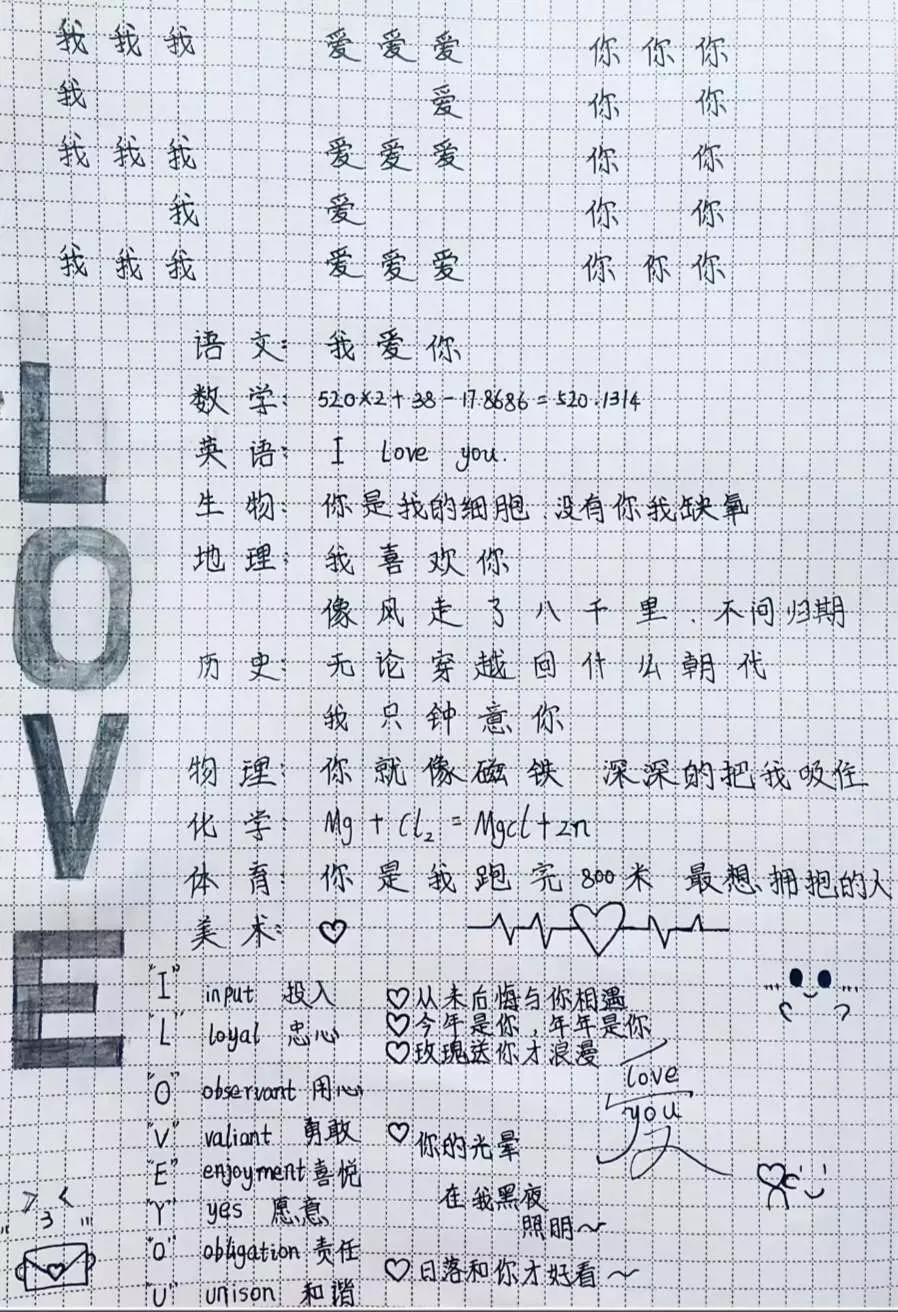 我 我 我 爱 爱 爱 你 你 你
我 爱 你 你
我 我 我 爱 爱 爱 你 你
我 爱 你 你
我 我 我 爱 爱 爱 你 你 你
LOVE
语文: 我爱你
数学: 520×2+38-17.8686=520.1314
英语: I love you.
生物: 你是我的细胞.没有你我缺氧
地理: 我喜欢你
像风走了八千里.不问归期
历史: 无论穿越回什么朝代
我只钟意你
物理: 你就像磁铁 深深的把我吸住
化学: Mg+Cl₂=Mgcl+zn
体育: 你是我跑完800米 最想拥抱的人
美术: ♡
"I" input 投入
"L" loyal 忠心
"O" observant 用心
"V" valiant 勇敢
"E" enjoyment 喜悦
"Y" yes 愿意
"O" obligation 责任
"U" unison 和谐
♡从未后悔与你相遇
♡今年是你,年年是你
♡玫瑰送你才浪漫
love
you
♡你的光晕
在我黑夜
照明~
♡日落和你才好看~